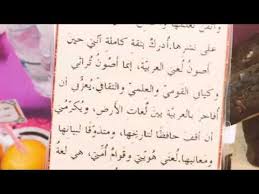 وأتقن تعلمها و
على نشرها. أُدركُ بثقةٍ كاملة أنّني حين
أصونُ لُغتي العربيّة، إنّما أصونُ تُراثي
وكياني القوميَّ والعلميَّ والثقافيَّ. يُعزّني أن
أُفاخر بالعربيّة بينَ لُغات الأرض، ويُكرّمُني
أن أقفَ حافظًا لتاريخها، ومتذوّقًا لبيانها
ومعانيها. لُغتي هُويّتي وقوامُ أُمّتي، هي لغةُ